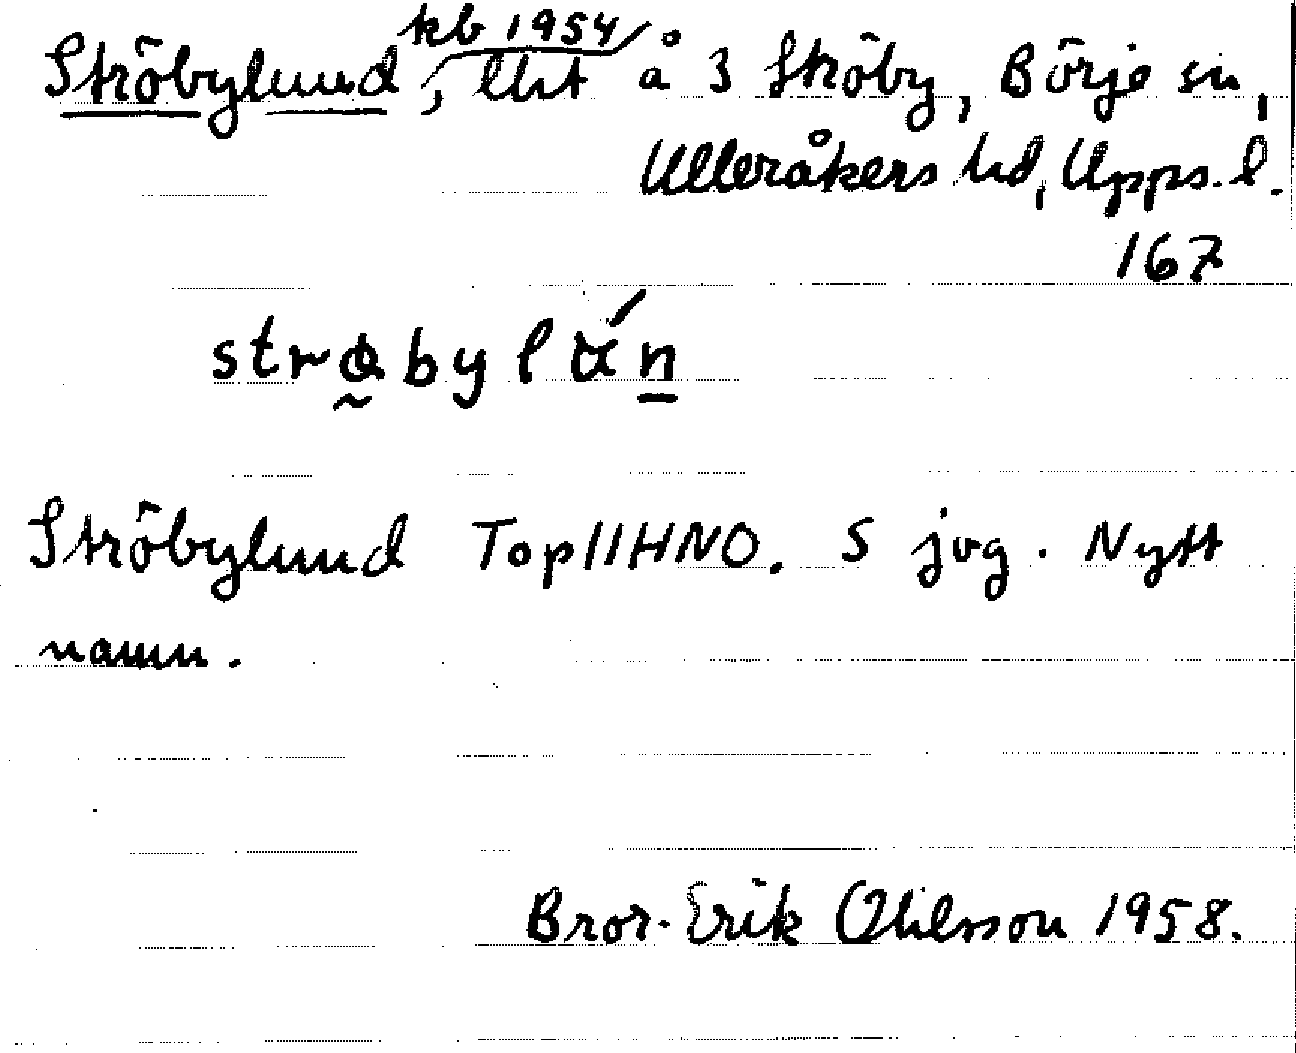 Ströbylund, kb 1954 lht å 3 Ströby, Börje sn,
Ulleråkers hd, Upps. l.
167
Ströbylund Top11HNO. S jvg. Nytt
namn.
Bror-Erik Ohlsson 1958.